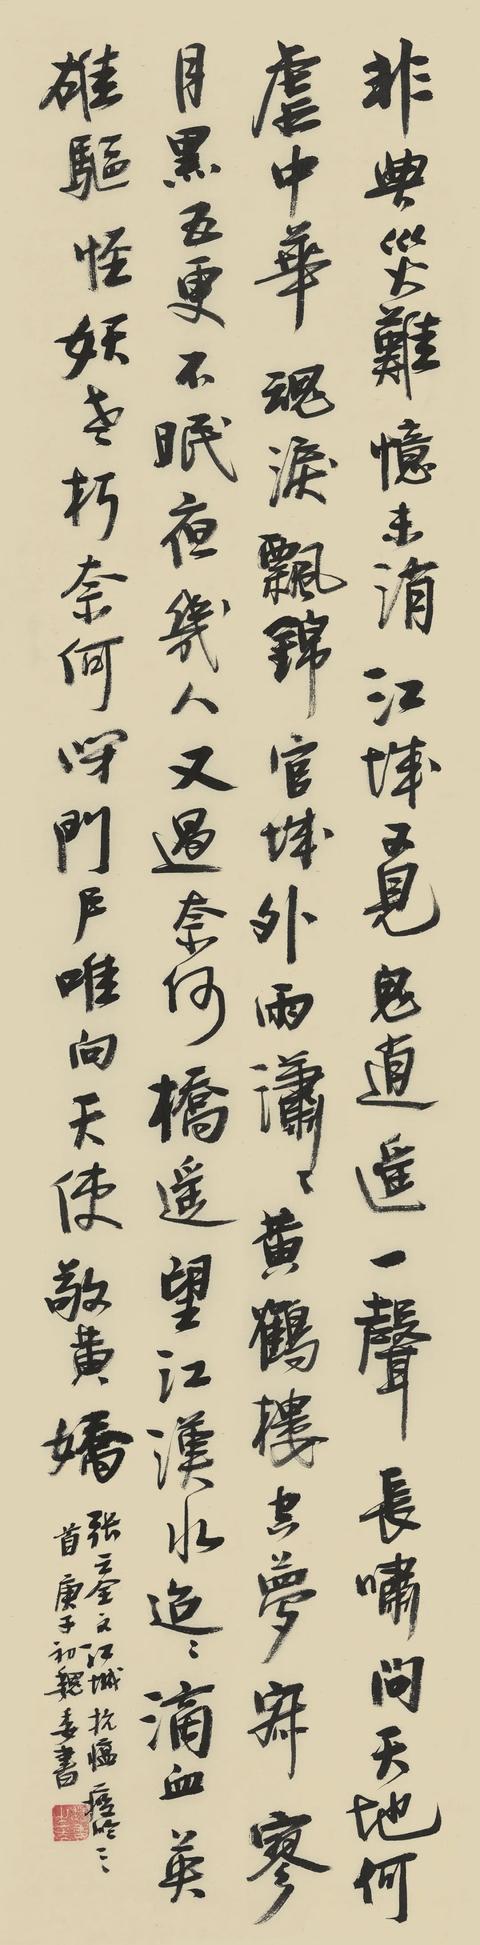 非典災難憶未消江城又見鬼逍遥一聲長嘯問天地何
虐中華魂淚飄錦官城外雨瀟〻黄鶴樓空夢寂寥
月黑五更不眠夜幾人又過奈何橋遥望江漢水迢〻滴血英
雄驅怪妖老朽奈何閉門戶唯向天使敬黄嬌
张文江城抗瘟疫吟
首庚子初魏書